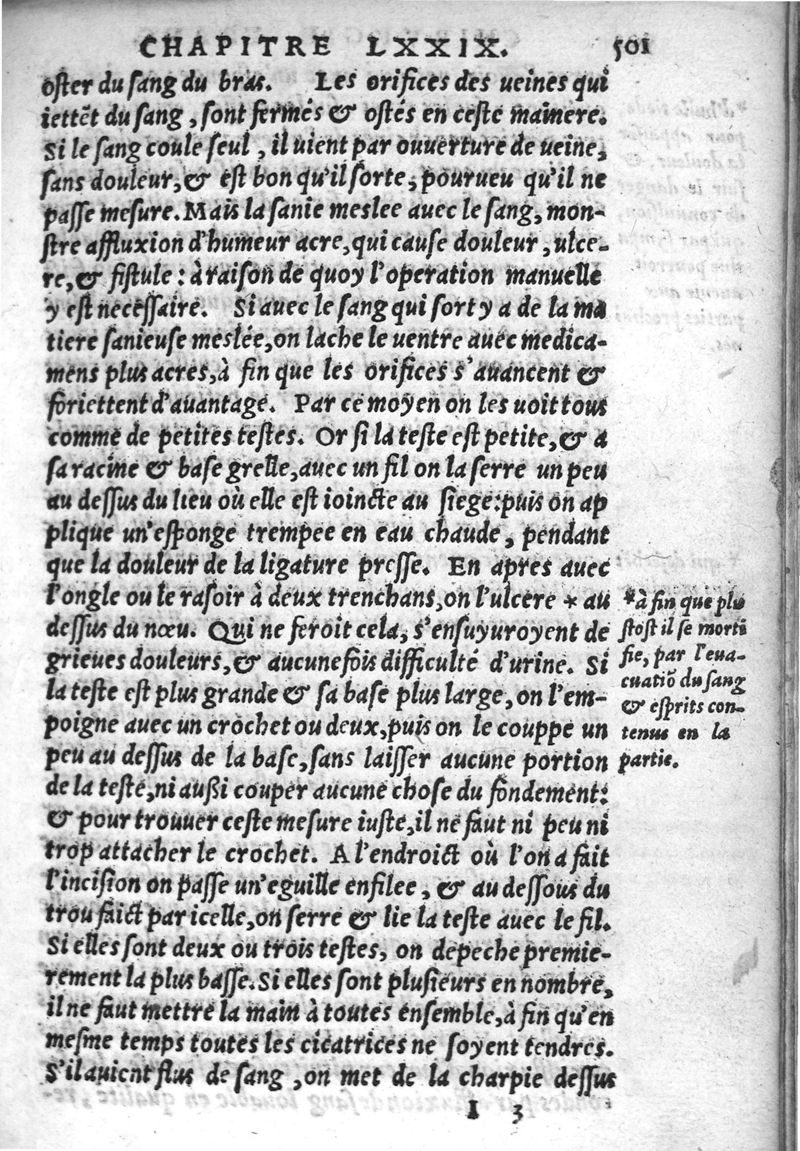 CHAPITRE LXXIX. 501
oster du sang du bras. Les orifices des ueines qui
iettẽt du sang, sont fermés & ostés en ceste maniere.
Si le sang coule seul, il uient par ouuerture de ueine,
sans douleur, & est bon qu'il sorte, pourueu qu'il ne
passe mesure. Mais la sanie meslee auec le sang, mon-
stre affluxion d'humeur acre, qui cause douleur, ulce-
re, & fistule: à raison de quoy l'operation manuelle
y est necessaire. Si auec le sang qui sort y a de la ma
tiere sanieuse meslée, on lache le uentre auec medica-
mens plus acres, à fin que les orifices s'auancent &
foriettent d'auantage. Par ce moyen on les uoit tous
comme de petites testes. Or si la teste est petite, & a
sa racine & base grelle, auec un fil on la serre un peu
au dessus du lieu où elle est ioincte au siege: puis on ap
plique un'esponge trempee en eau chaude, pendant
que la douleur de la ligature presse. En apres auec
l'ongle ou le rasoir à deux trenchans, on l'ulcere * au
dessus du nœu. Qui ne feroit cela, s'ensuyuroyent de
grieues douleurs, & aucunefois difficulté d'urine. Si
la teste est plus grande & sa base plus large, on l'em-
poigne auec un crochet ou deux, puis on le couppe un
peu au dessus de la base, sans laisser aucune portion
de la teste, ni aussi couper aucune chose du fondement:
& pour trouuer ceste mesure iuste, il ne faut ni peu ni
trop attacher le crochet. A l'endroict où l'on a fait
l'incision on passe un'eguille enfilee, & au dessous du
trou faict par icelle, on serre & lie la teste auec le fil.
Si elles sont deux ou trois testes, on depeche premie-
rement la plus basse. Si elles sont plusieurs en nombre,
il ne faut mettre la main à toutes ensemble, à fin qu'en
mesme temps toutes les cicatrices ne soyent tendres.
S'il auient flus de sang, on met de la charpie dessus
I 3
*à fin que plus
stost il se morti
fie, par l'eua-
cuatiõ du sang
& esprits con-
tenus en la
partie.